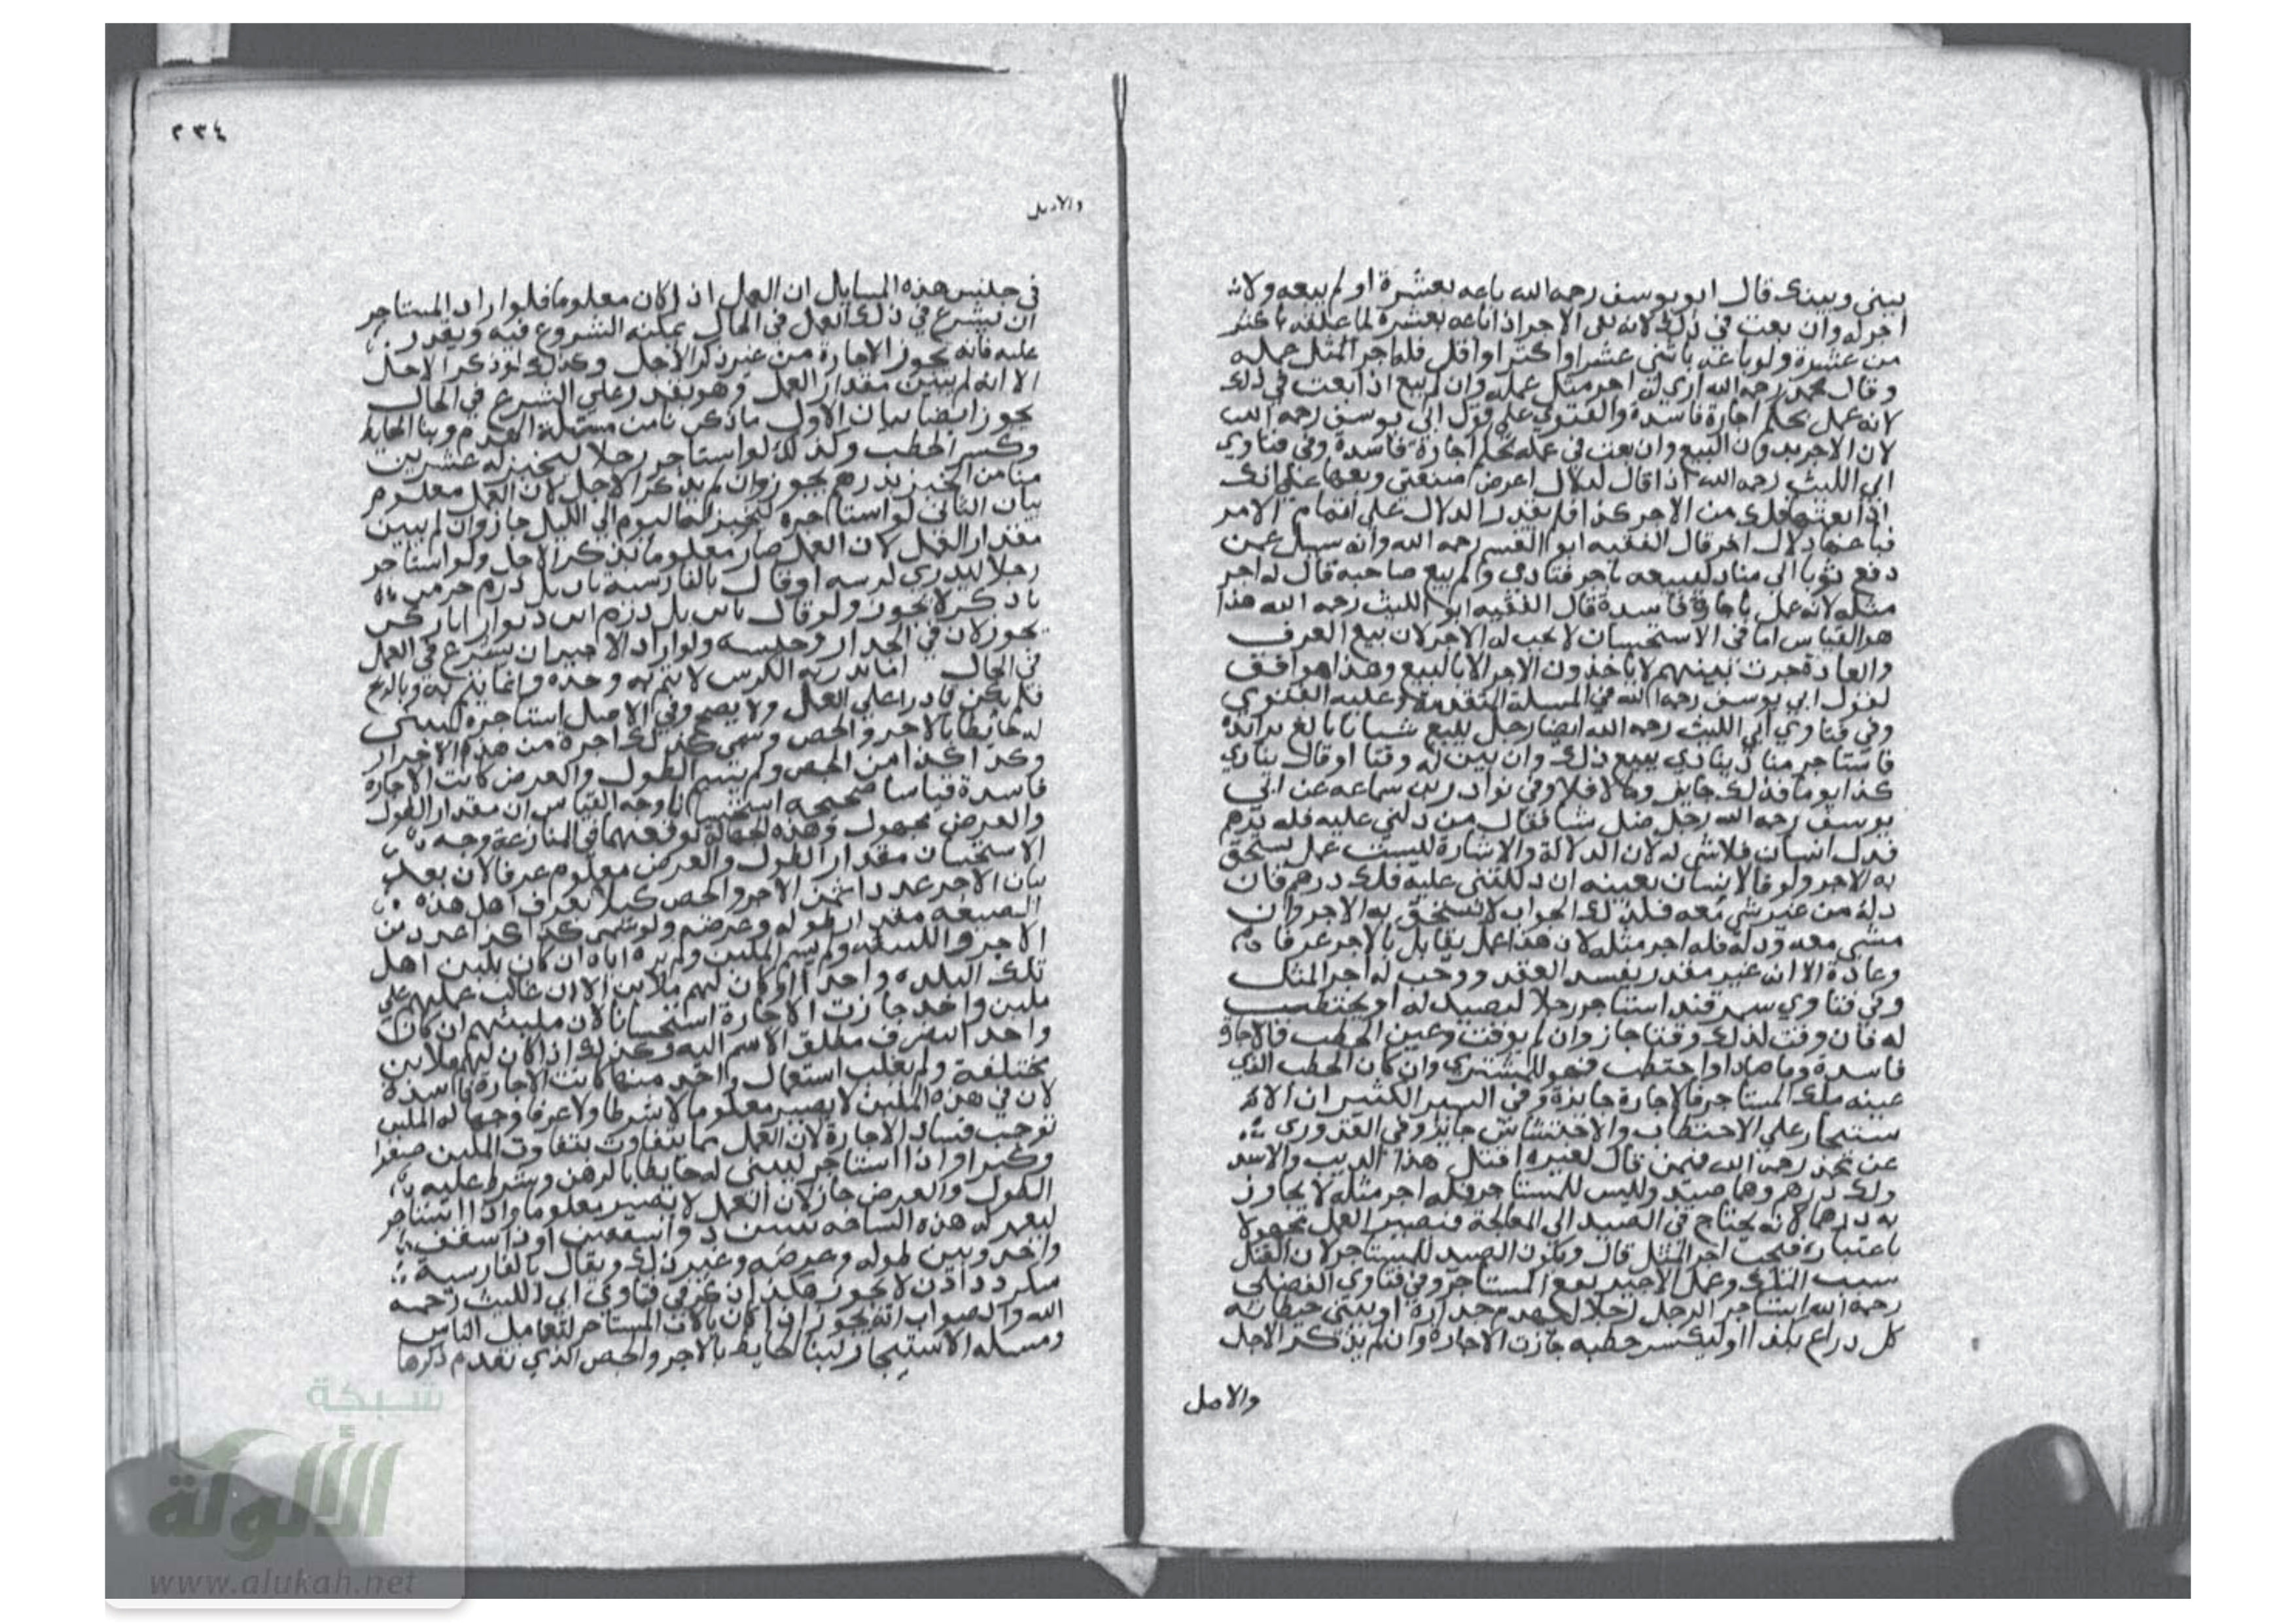 بيني وبينك قال ابو يوسف رحمه الله ان باعه بعشرة او لم يبعه ولا
اجر له وان بعت في ذلك لانه نفى الاجر اذا باعه بعشرة لما علقه باكثر
من عشرة ولو باعه باثني عشر او اكثر او اقل فله اجر المثل عمله
وقال محمد رحمه الله ارى له اجر مثل عمله وان لم يبع اذا بعت في ذلك
لانه عمل بحكم اجارة فاسدة والفتوى على قول ابي يوسف رحمه الله
لان الاجر بدون البيع وان بعت في عمله بحكم اجارة فاسدة وفي فتاوي
ابي الليث رحمه الله اذا قال لدلال اعرض ضيعتي وبعها على انك
اذا بعتها فلك من الاجر كذا فلم يقدر الدلال على اتمام الامر
فباعها دلال اخر قال الفقيه ابو القسم رحمه الله وانه سيل عمن
دفع ثوبا الى مناد ليبيعه باجر فنادى ولم يبع صاحبه قال له اجر
مثله لانه عمل باجارة فاسدة قال الفقيه ابو الليث رحمه الله هذا
هو القياس اما في الاستحسان لا يجب له الاجر لان بيع العرف
والعادة جرت بينهم لا ياخذون الاجر الا بالبيع وهذا موافق
لقول ابي يوسف رحمه الله في المسلة المتقدمة وعليه الفتوي
وفي فتاوي ابي الليث رحمه الله ايضا رجل يبيع شيا
فاستاجر مناديا ينادي ببيع ذلك وان بين له وقتا او قال ينادي
كذا يوما فذلك جايز والا فلا وفي نوادر بن سماعه عن ابي
يوسف رحمه الله رجل ضل شيا فقال من دلني عليه فله درهم
فدل انسان فلا شي له لان الدلالة والاشارة ليست عمل يستحق
به الاجر ولو قال لانسان بعينه ان دللتني عليه فلك درهم فان
دله من غير شي معه فكذلك الجواب لا يستحق به الاجر وان
مشى معه ودله فله اجر مثله لان هذا عمل يقابل بالاجر عرفا
وعادة الا ان غير مقدر يفسد العقد ووجب له اجر المثل
وفي فتاوي سمرقند استاجر رجلا ليصيد له او يحتطب
له فان وقت لذلك وقتا جاز وان لم يوقت وعين الحطب فالاجارة
فاسدة وما صاد او احتطب فهو للمشتري وان كان الحطب الذي
عينه ملك المستاجر فالاجارة جايزة وفي السير الكثير ان الا
ستيجار على الاحتطاب والاحتشاش جايز وفي القدوري
عن محمد رحمه الله فيمن قال لغيره اقتل هذا الذيب والاسد
ولك درهم وهما صيد وليس للمستاجر فله اجر مثله لا يجاوز
به درهما لانه يحتاج في الصيد الى المعالجة فيصير العمل مجهولا
باعتباره فيجب اجر المثل قال ويكون الصيد للمستاجر لان القتل
سبب التملك وعمل الاجير يقع للمستاجر وفي فتاوي الفضلي
رحمه الله استاجر الرجل رجلا ليهدم جداره او يبني حيطانه
كل دراع بكذا او ليكسر حطبه جازت الاجارة وان لم يذكر الاجل
والاصل
٢٣٤
والاصل
في جنس هذه المسايل ان العمل اذا كان معلوما فلو اراد المستاجر
ان يشرع في ذلك العمل في الحال يمكنه الشروع فيه ويقدر
عليه فانه يجوز الاجارة من غير ذكر الاجل وكذلك لو ذكر الاجل
الا انه لم يبين مقدار العمل وهو يقدر على الشرع في الحال
يجوز ايضا بيان الاول ما ذكرنا من مسئلة الهدم وبنا الحايط
وكسر الحطب وكذلك لو استاجر رجلا ليخبز له عشرين
منا من الخبز بدرهم يجوز وان لم يذكر الاجل لان العمل معلوم
بيان الثاني لو استاجره ليخبز له اليوم الى الليل جاز وان لم يبين
مقدار العمل لان العمل صار معلوما بذكر الاجل ولو استاجر
رجلا ليذري كدسه او قال بالفارسية
لا يجوز ولو قال
يجوز لان في الجدار وجنسه ولو اراد الاجير ان يشرع في العمل
في الحال اما تذرية الكدس لا يتم به وحده وانما يتم به وبالريح
فلم يكن قادرا على العمل ولا يصح وفي الاصل استاجره ليبني
له حايطا بالاجر والجص وسمى كذلك اجرة من هذه الاجرار
وكذا كذا من الجص ولم يسم الطول والعرض كانت الاجارة
فاسدة قياسا صحيحه استحسانا وجه القياس ان مقدار الطول
والعرض مجهول وهذه الجهالة توقعهما في المنازعة وجه
الاستحسان مقدار الطول والعرض معلوم عرفا لان بعد
بيان الاجر عددا ثمن الاجر والجص كيلا يعرف اهل هذه
الصنعة مقدار طوله وعرضه ولو سمى كذا كذا عددا من
الاجر واللبنة ولم يسم الملبن ولم يره اياه ان كان ملبن اهل
تلك البلدة واحدا او كان لهم ملابن الا ان غالب عملهم على
ملبن واحد جازت الاجارة استحسانا لان ملبنهم ان كان
واحدا انصرف مطلق الاسم اليه وكذلك اذا كان لهم ملابن
مختلفة ولم يغلب استعمال واحد منها كانت الاجارة فاسدة
لان في هذه الملبن لا يصير معلوما لا شرطا ولا عرفا وجهالة الملبن
توجب فساد الاجارة لان العمل مما يتفاوت بتفاوت الملبن صغرا
وكبرا واذا استاجر ليبني له حايطا بالرهن وشرط عليه
الطول والعرض جاز لان العمل لا يصير معلوما واذا استاجر
ليعمر له هذه الساحه بيتين ذو اسقفين او ذا سقف
واحد وبين طوله وعرضه وغير ذلك ويقال بالفارسية
لا يجوز هكذا ذكر في فتاوي ابي الليث رحمه
الله والصواب انه يجوز اذا كان بالات المستاجر لتعامل الناس
ومسله الاستيجار لبنا الحايط بالاجر والجص الذي تقدم ذكرها
شبكة
الألوكة
www.alukah.net